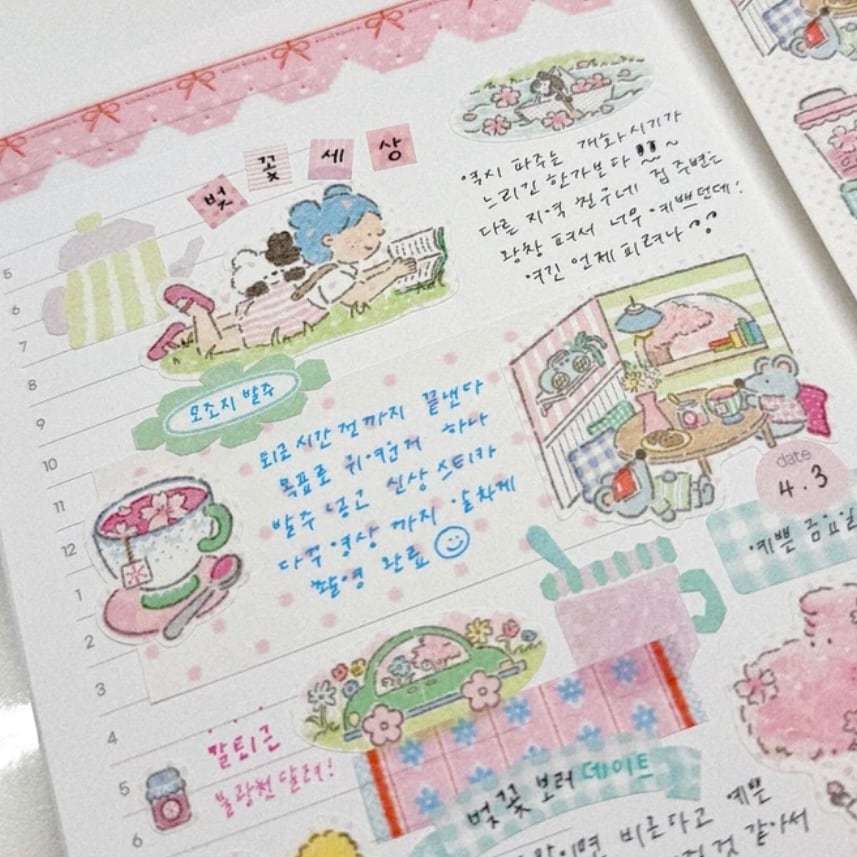 벚꽃세상
역시 파주는 개화시기가
느리긴 한가보다!!~
다른 지역 친구네 집 주변은
왕창 펴서 너무 예쁘던데!
여긴 언제 피려나
5
6
7
8
9
10
11
12
1
2
3
4
5
6
모조지 발주
퇴근시간 전까지 끝낸다
목표로 귀여운거 하나
발주 넣고 신상 스티카
다꾸 영상까지 알차게
촬영 완료
date
4.3
예쁜 금요일
칼퇴근
불광천 달려!
벚꽃 보러 데이트
비른다고 예쁜
것 같아서